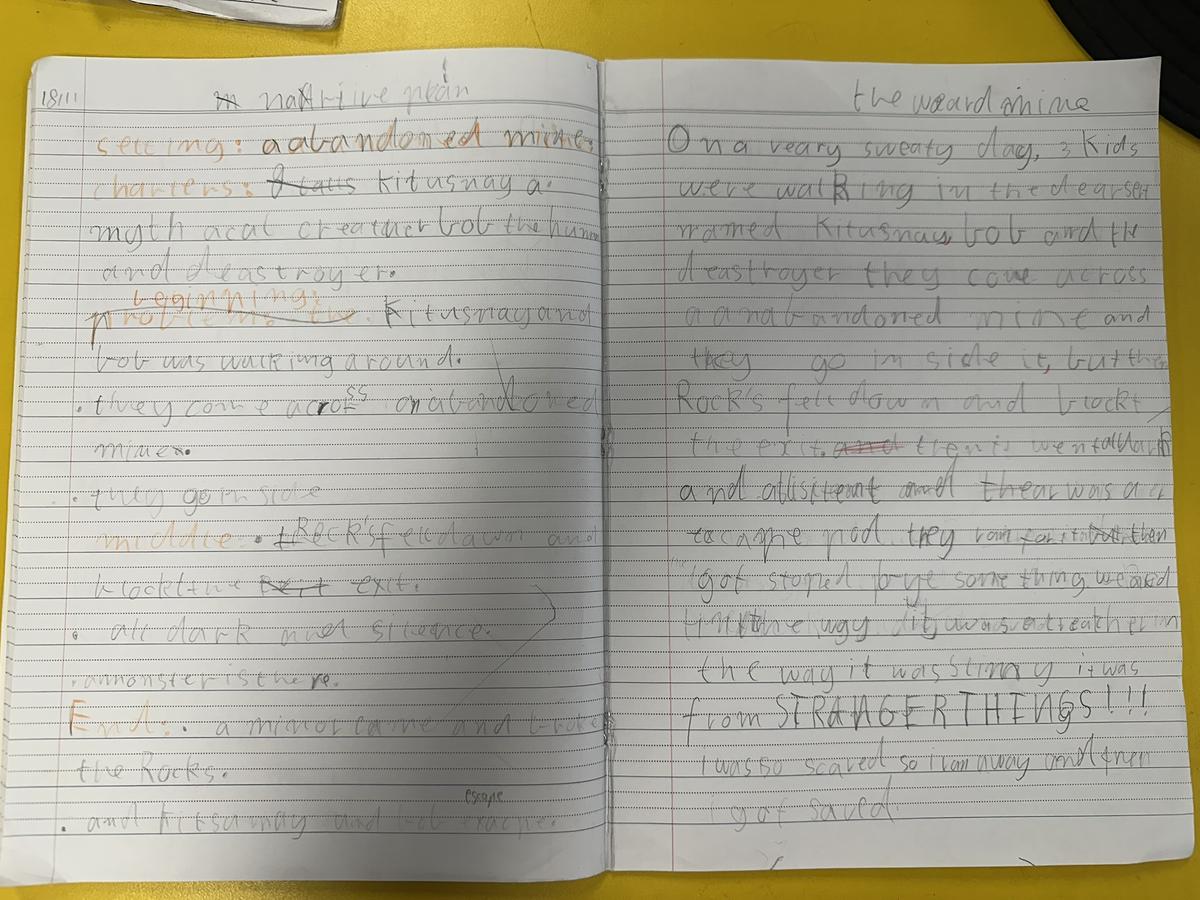 18/11
narrtive plan
setting: a abandoned mine.
charters: Kitusnay a.
myth acal creather bob the human
and deastroyer.
beginning:
problem: the Kitusnay and
bob was walking around.
. they come across an abandoned
mine.
. they go in side
middle. Rock's fell down and
block the exit.
. all dark and silence.
. a monster is there.
End: . a minor came and broke
the Rocks.
escape
. and Kitsunay and bob
the weard mine
On a veary sweaty day, 3 Kids
were walking in the dearsert
named Kitusnay, bob and the
deastroyer they come across
a anabandoned mine and
they go in side it, but then
Rock's fell down and blockt
the exit. and then it went all dark
and all and thear was a
pod they ran for it but then
i got stoped bye some thing weard
the it was a creather in
the way it was it was
from STRANGER THINGS!!!
I was so scared so i ran away and then
i got saved.